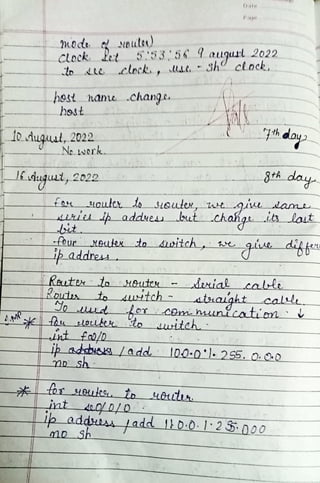 Date
Page
mode of router)
clock set 5:53:56 9 august 2022
to see clock, use - sh clock.
host name change.
host
10 August, 2022 7th day
No work.
16 August, 2022 8th day
for router to router, we give same
series ip address but change its last
bit.
four router to switch, we give differ
ip address.
Router to router - Serial cable
Router to switch - straight cable
To used for communication ↓
* for router to switch.
int fa0/0
ip address / add 100.0.1. 255.0.0.0
no sh
* for router to router
int se0/0/0
ip address / add 110.0.1.255.000
no sh